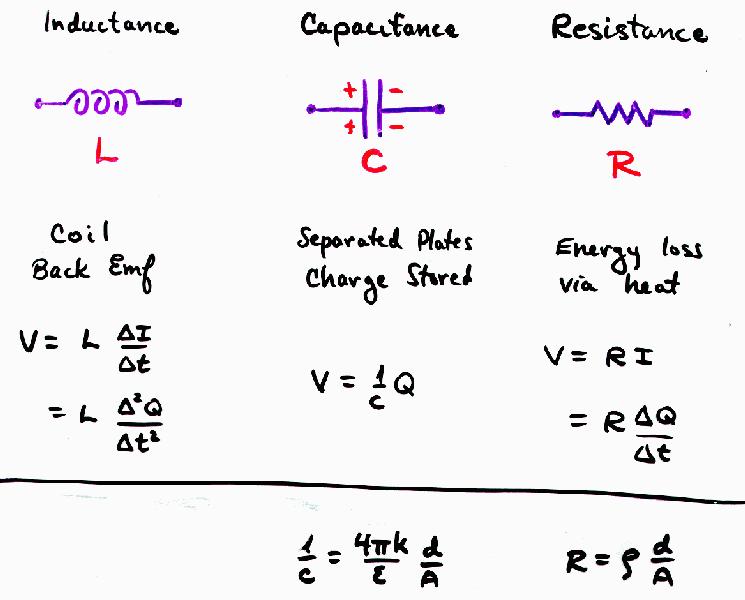 Inductance
L
Coil
Back Emf
V = L ΔI/Δt
= L Δ²Q/Δt²
Capacitance
+ −
+ −
C
Separated Plates
Charge Stored
V = 1/C Q
1/C = 4πk/ε d/A
Resistance
R
Energy loss
via heat
V = R I
= R ΔQ/Δt
R = ρ d/A